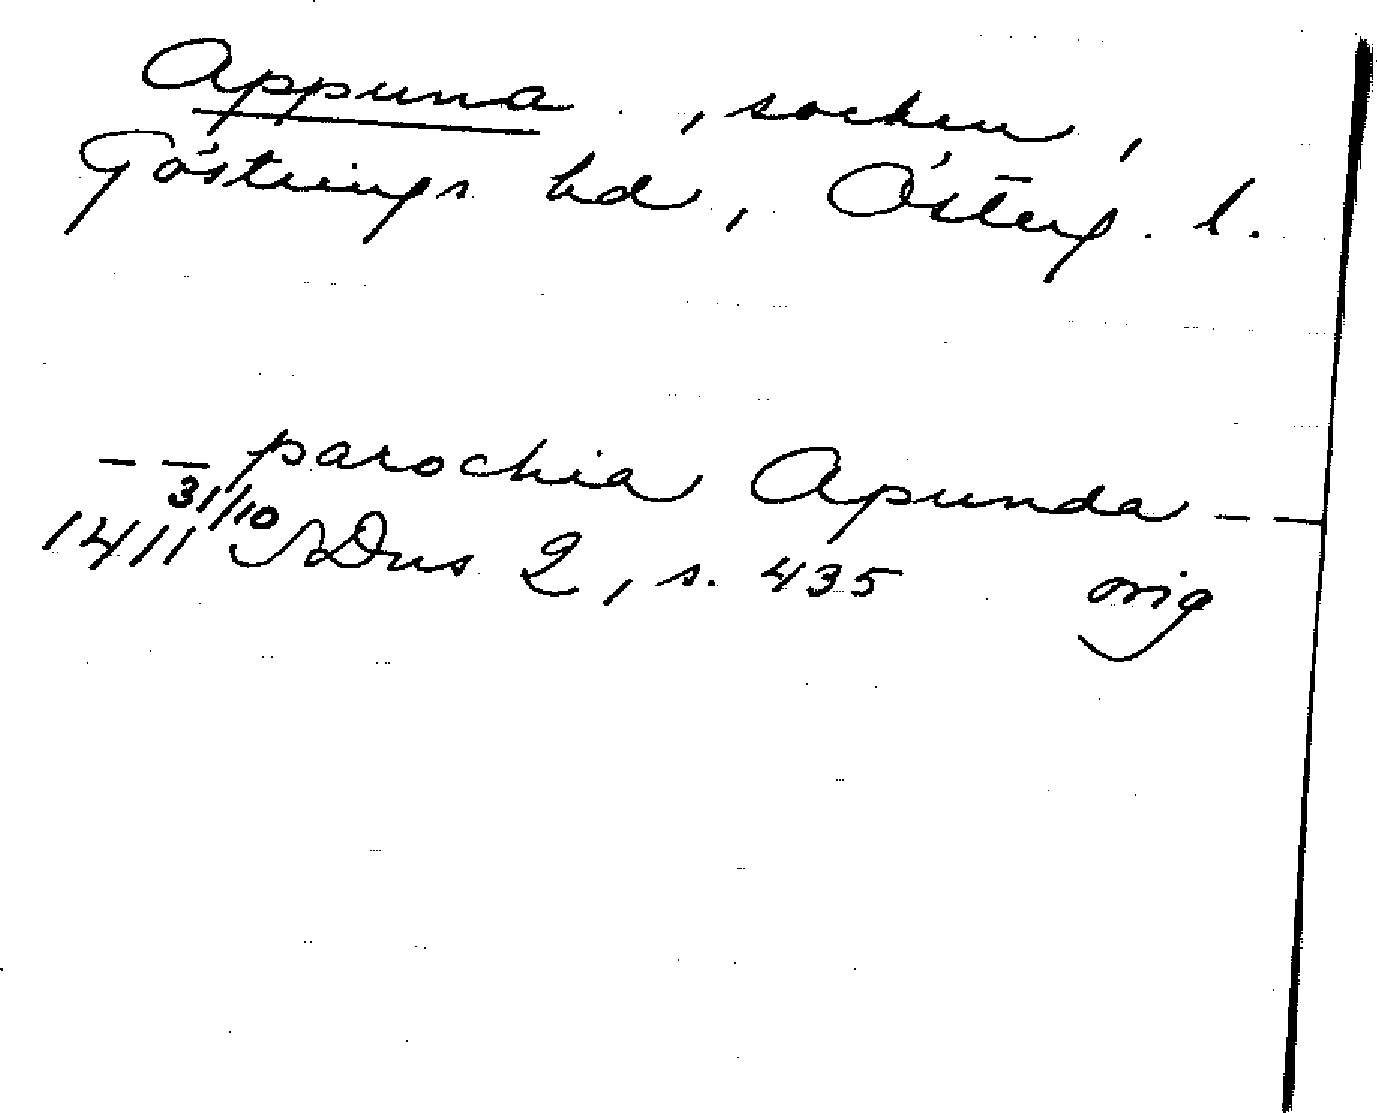 Appuna, socken,
Göstrings hd, Österg. l.
-- parochia Apunda --
1411 31/10 SDns 2, s. 435 orig